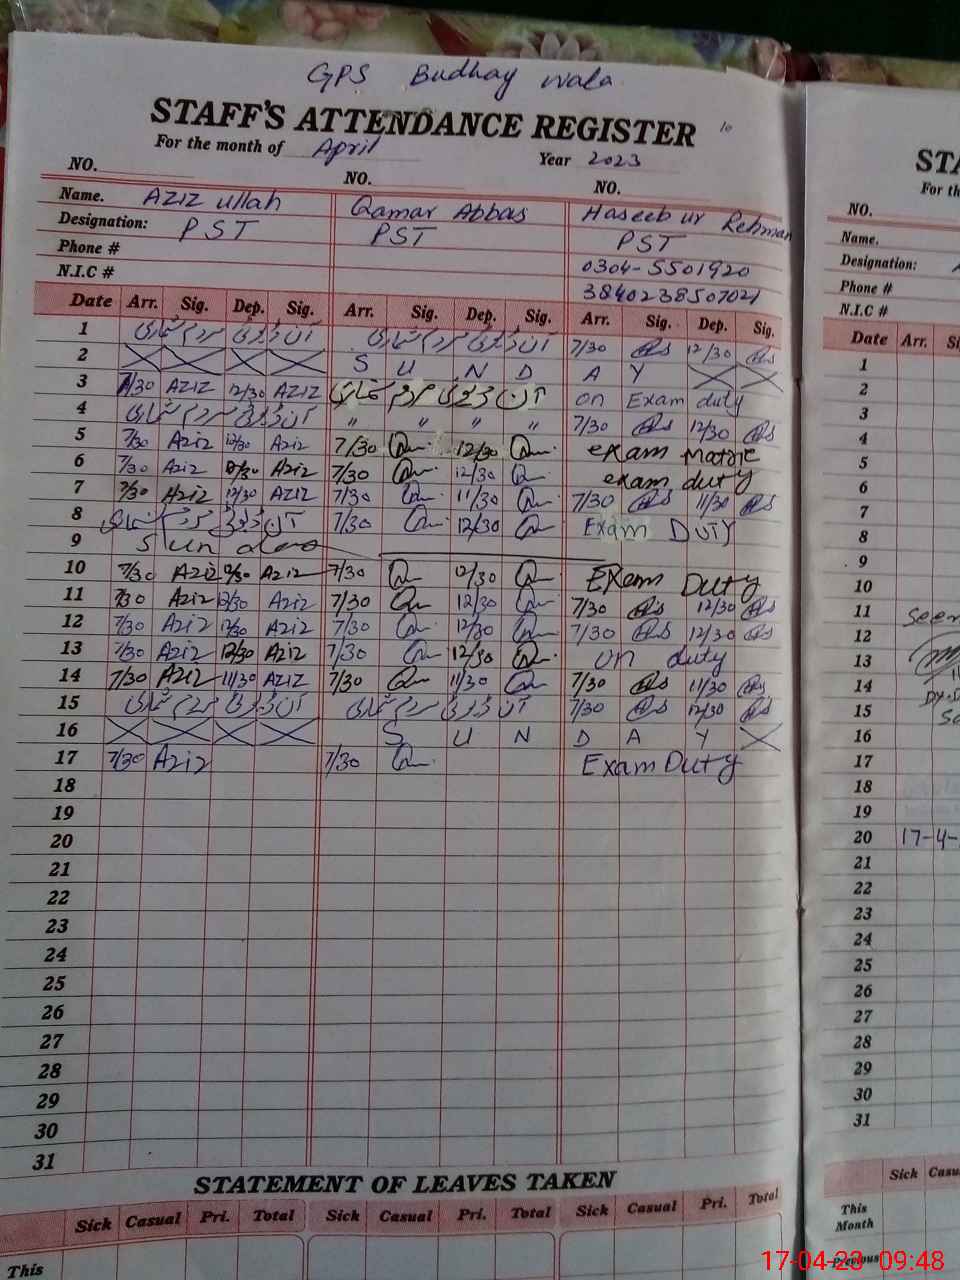 GPS Budhay wala
STAFF'S ATTENDANCE REGISTER 10
For the month of April Year 2023
NO. NO. NO.
Name. Aziz ullah Qamar Abbas Haseeb ur Rehman
Designation: PST PST PST
Phone # 0304-5501920
N.I.C # 3840238507021
Date Arr. Sig. Dep. Sig. Arr. Sig. Dep. Sig. Arr. Sig. Dep. Sig.
1 آن ڈیوٹی مردم شماری آن ڈیوٹی مردم شماری 7/30 12/30
2 S U N D A Y
3 7/30 AZIZ 12/30 AZIZ آن ڈیوٹی مردم شماری on Exam duty
4 آن ڈیوٹی مردم شماری " " " " 7/30 12/30
5 7/30 Aziz 12/30 Aziz 7/30 12/30 exam Matric
6 7/30 Aziz 12/30 Aziz 7/30 12/30 exam duty
7 7/30 Aziz 12/30 AZIZ 7/30 11/30 7/30 11/30
8 آن ڈیوٹی مردم شماری 7/30 12/30 Exam DUTY
9 Sun
10 7/30 Aziz 12/30 Aziz 7/30 12/30 Exam Duty
11 7/30 Aziz 12/30 Aziz 7/30 12/30 7/30 12/30
12 7/30 Aziz 12/30 Aziz 7/30 12/30 7/30 12/30
13 7/30 Aziz 12/30 Aziz 7/30 12/30 on duty
14 7/30 Aziz 11/30 AZIZ 7/30 11/30 7/30 11/30
15 آن ڈیوٹی مردم شماری آن ڈیوٹی مردم شماری 7/30 12/30
16 S U N D A Y
17 7/30 Aziz 7/30 Exam Duty
18
19
20
21
22
23
24
25
26
27
28
29
30
31
STATEMENT OF LEAVES TAKEN
Sick Casual Pri. Total Sick Casual Pri. Total Sick Casual Pri. Total
This
NO.
Name.
Designation:
Phone #
N.I.C #
Date Arr.
1
2
3
4
5
6
7
8
9
10
11 Seen
12
13
14
15
16
17
18
19
20 17-4-
21
22
23
24
25
26
27
28
29
30
31
Sick
This
Month
Previous
17-04-23 09:48